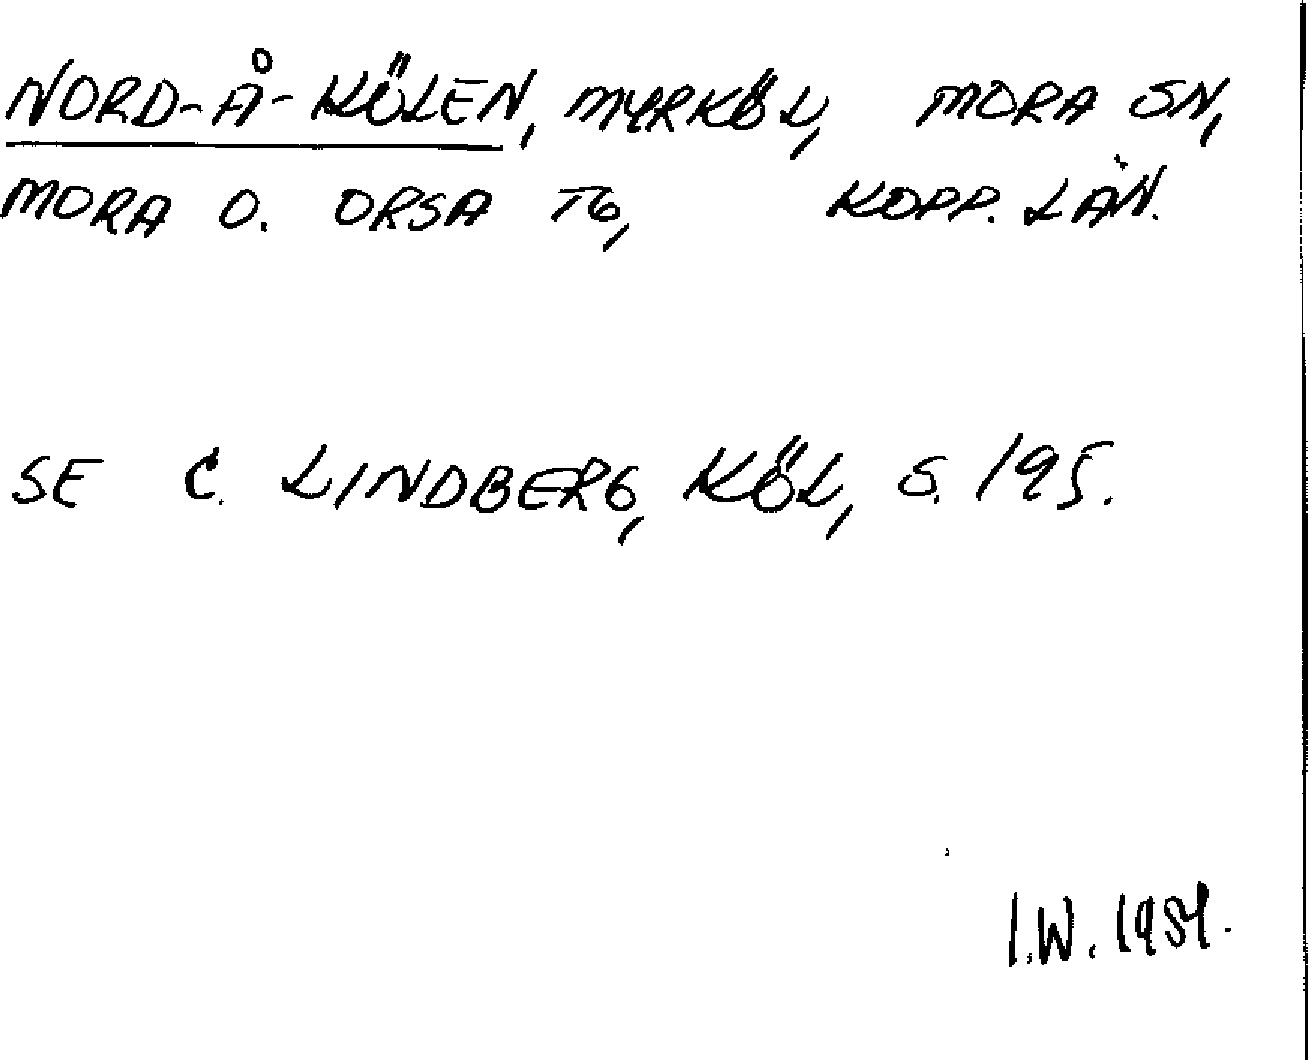 NORD-Å-KÖLEN, MYRKÖL, MORA SN,
MORA O. ORSA TG, KOPP. LÄN.
SE C. LINDBERG, KÖL, S. 195.
I.W.